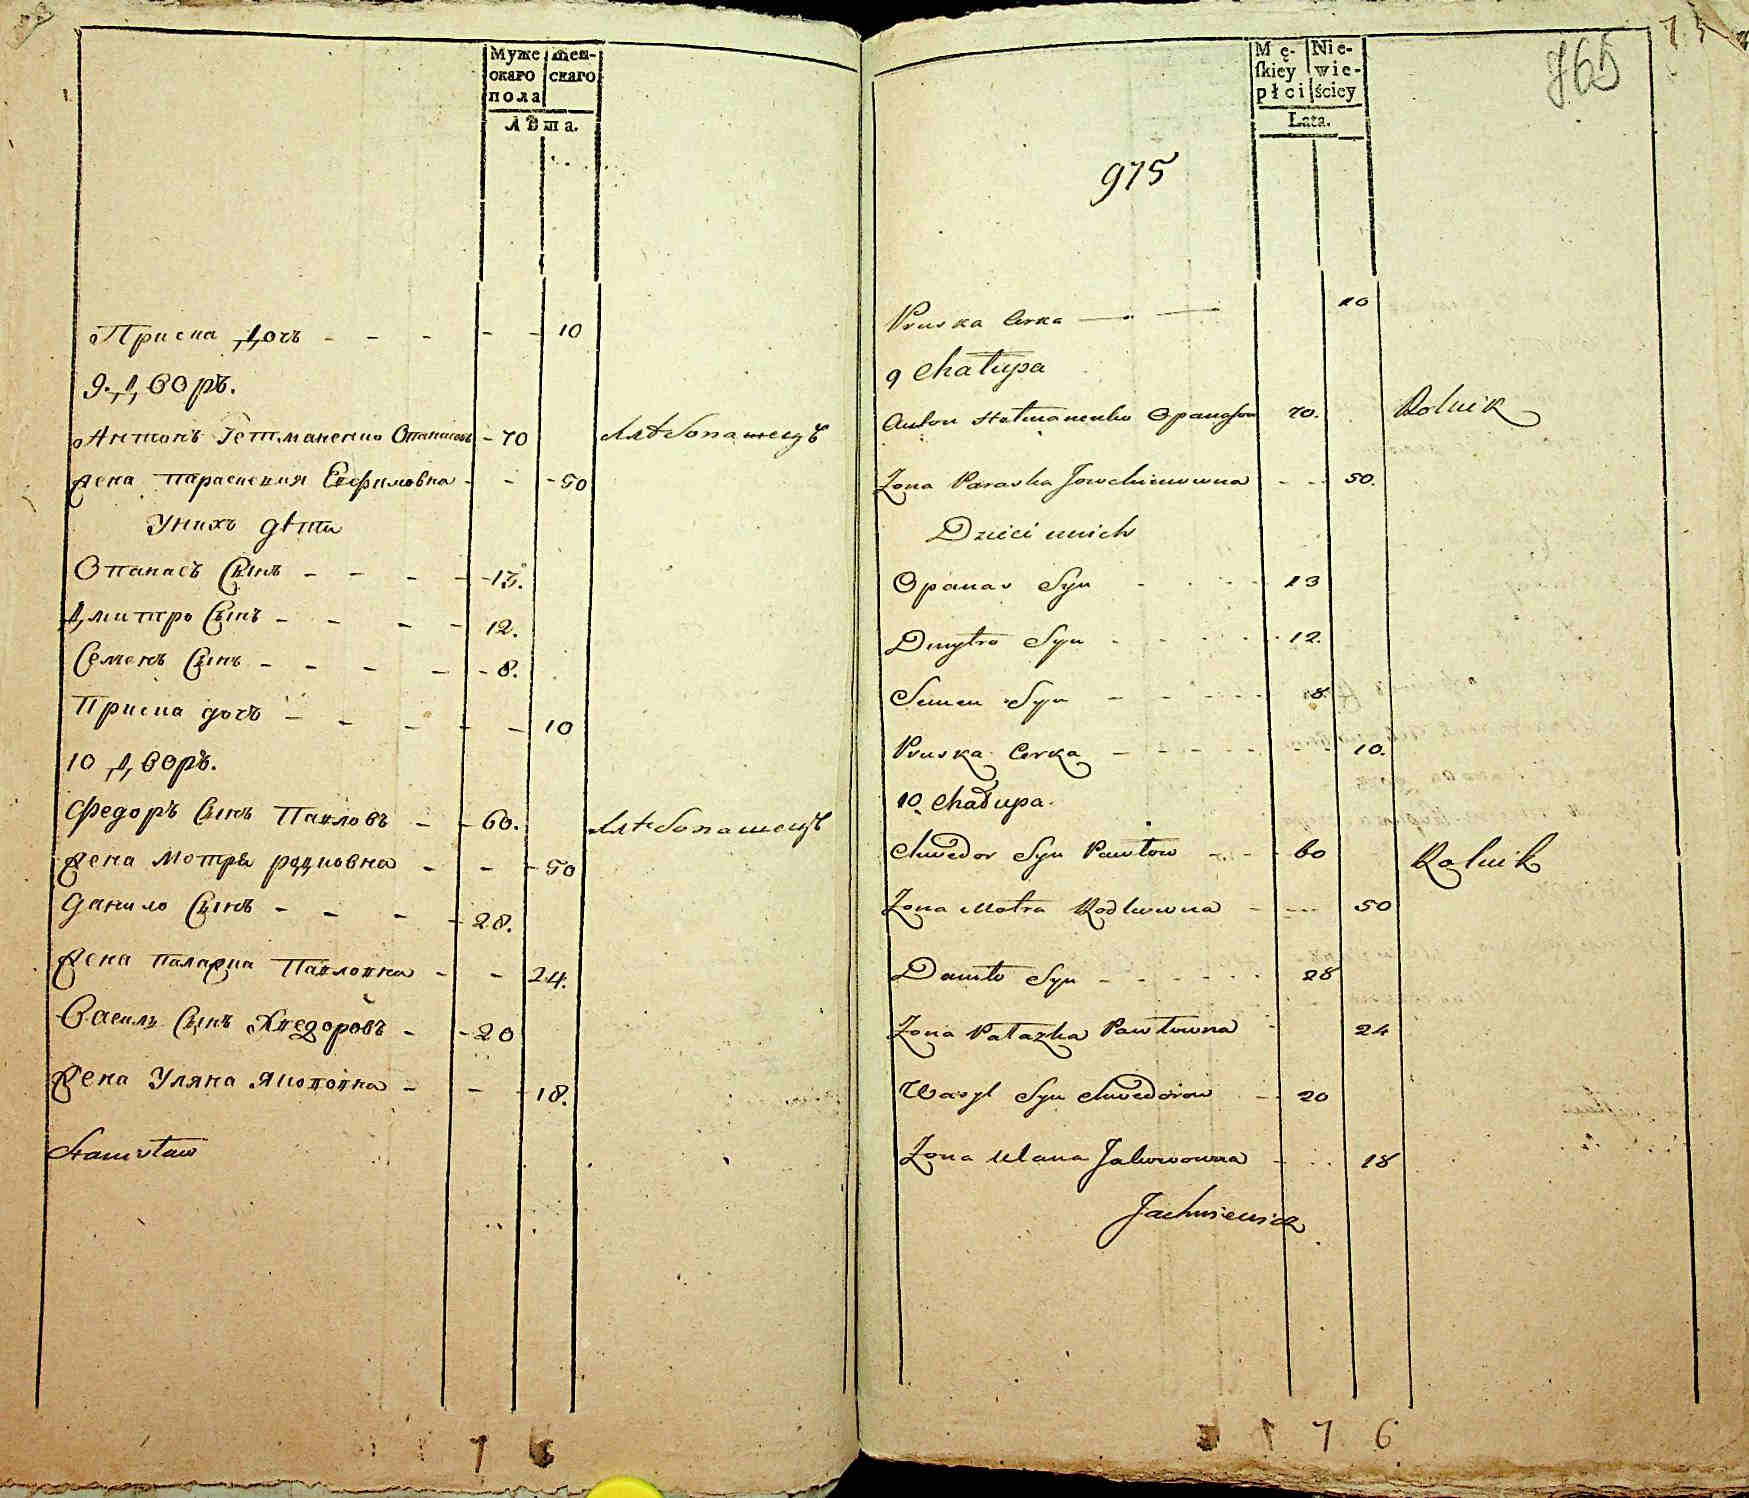 Муже скаго пола
женскаго
Лѣта.
Приска Дочь - - - - - 10
9. Дворъ.
Антонъ Гетманенко Опанасовъ - 70 Хлѣбопашецъ
жена Параскевия Ефимовна - - - 50
У нихъ дѣти
Опанасъ Сынъ - - - - 13.
Дмитро Сынъ - - - - 12.
Семенъ Сынъ - - - - 8.
Приска дочь - - - - - 10
10 Дворъ.
Федоръ Сынъ Павловъ - - 60. Хлѣбопашецъ
жена Мотря родковна - - - 50
Данило Сынъ - - - - 28.
жена Палажка Павловна - - 24.
Василь Сынъ Хведоровъ - - 20
жена Уляна Якововна - - - 18.
Stanisław
7 6
Mę-skiey płci
Nie-wieściey
Lata.
765
975
Pruska Corka — — 10
9 Chałupa
Anton Hetmanenko Opanasow 70. Rolnik
Żona Paraska Jowchimowna - - 50.
Dzieci u nich
Opanas Syn - - - 13
Dmytro Syn - - - 12.
Semen Syn - - - 8.
Pruska Corka - - - - 10.
10 Chałupa.
Chwedor Syn Pawłow - - - 60 Rolnik
Żona Motra Rodkowna - - - 50
Daniło Syn - - - - 28
Żona Pałazka Pawłowna - 24
Wasyl Syn Chwedorow - - 20
Żona Ulana Jakowowna - - - 18
Jachniewicz
1 7 6